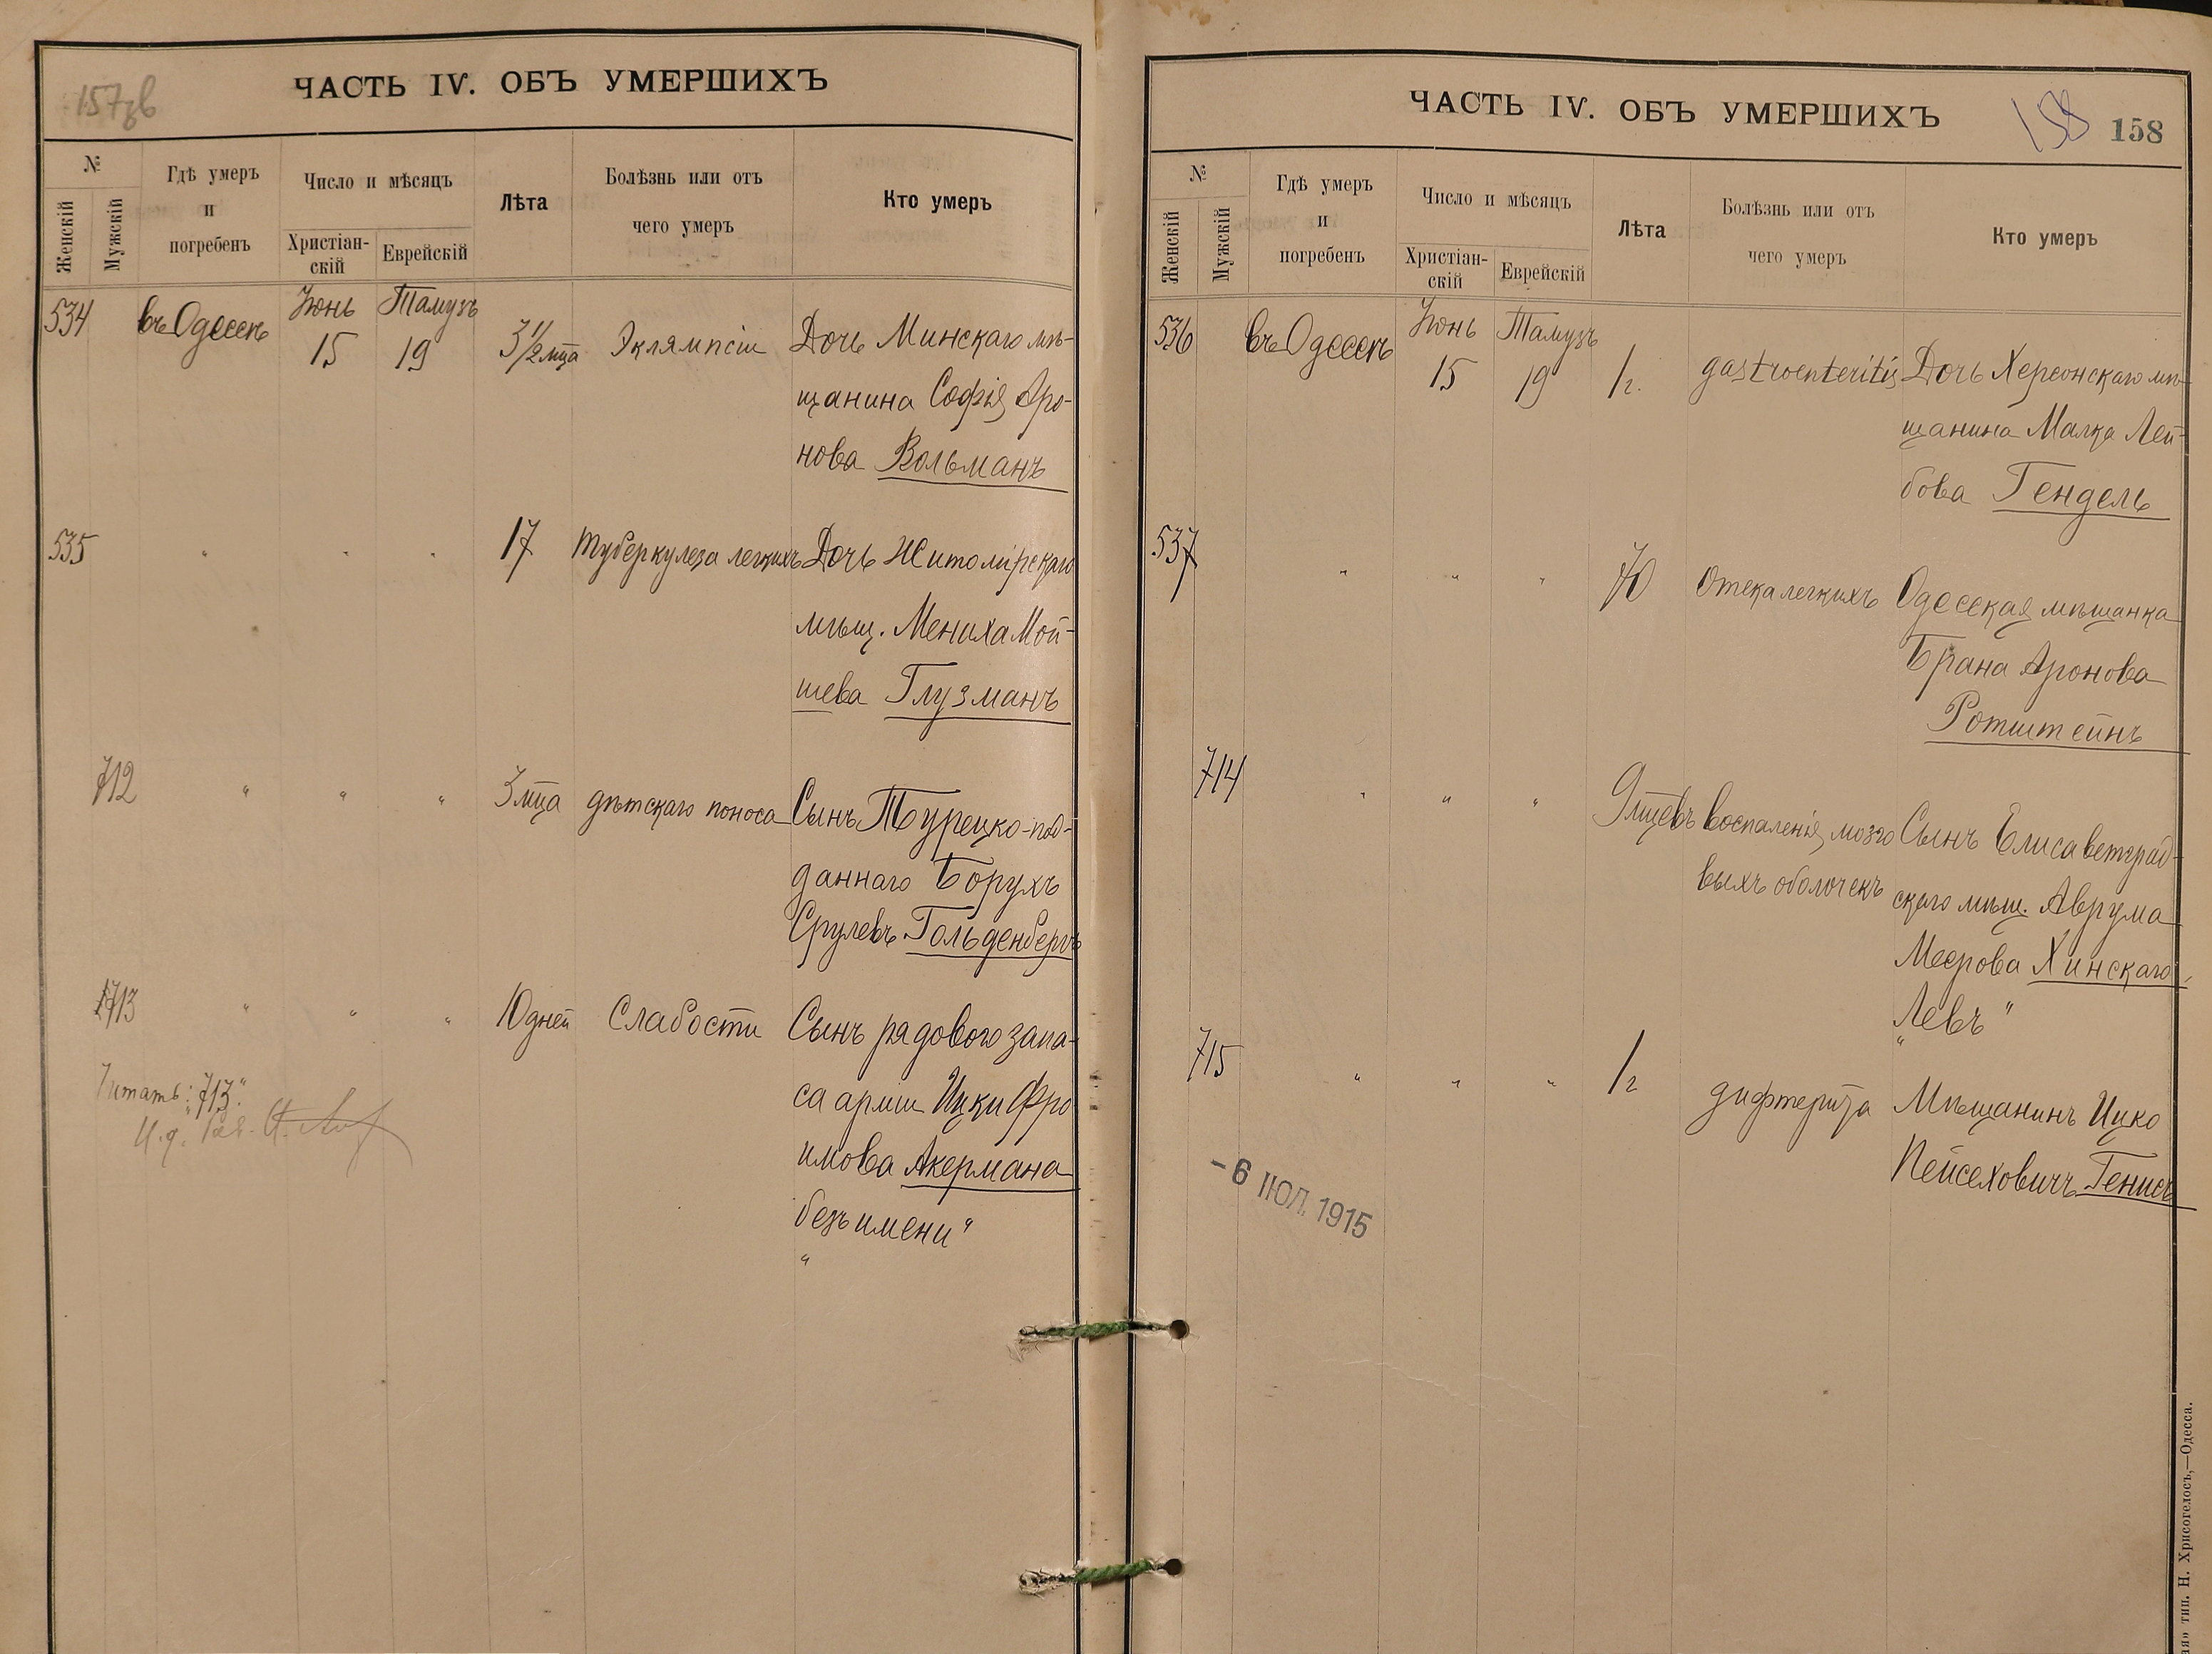 157об
ЧАСТЬ IV. ОБЪ УМЕРШИХЪ
№
Женскій
Мужскій
Гдѣ умеръ
и
погребенъ
Число и мѣсяцъ
Христіан-
скій
Еврейскій
Лѣта
Болѣзнь или отъ
чего умеръ
Кто умеръ
534 въ Одессѣ Іюнь 15 Тамузъ 19 3 1/2 мца Эклямпсіи Дочь Минскаго мѣ-
щанина Софія Аро-
нова Вольманъ
535 " " " 17 Туберкулеза легкихъ Дочь Житомірскаго
мѣщ. Мениха Мой-
шева Глузманъ
712 " " " 3 мца дѣтскаго поноса Сынъ Турецко-под-
даннаго Борухъ
Срулевъ Гольденбергъ
713 " " " 10 дней Слабости Сынъ рядового запа-
са арміи Ицки Фро
имова Акермана
безъ имени"
"
Читать: "713".
И. д. Рав.
ЧАСТЬ IV. ОБЪ УМЕРШИХЪ
158
158
№
Женскій
Мужскій
Гдѣ умеръ
и
погребенъ
Число и мѣсяцъ
Христіан-
скій
Еврейскій
Лѣта
Болѣзнь или отъ
чего умеръ
Кто умеръ
536 въ Одессѣ Іюнь 15 Тамузъ 19 1 г. gastroenteritis Дочь Херсонскаго мѣ-
щанина Малка Лей-
бова Гендель
537 " " " 70 Отека легкихъ Одесская мѣщанка
Брана Аронова
Ротштейнъ
714 " " " 9 мцевъ воспаленія мозго Сынъ Елисаветград-
выхъ оболочекъ скаго мѣщ. Аврума
Меерова Хинскаго
"Левъ"
715 " " " 1 г дифтерита Мѣщанинъ Ицко
Пейсеховичъ Генисъ
-6 ІЮЛ. 1915
тип. Н. Хрисогелосъ,—Одесса.